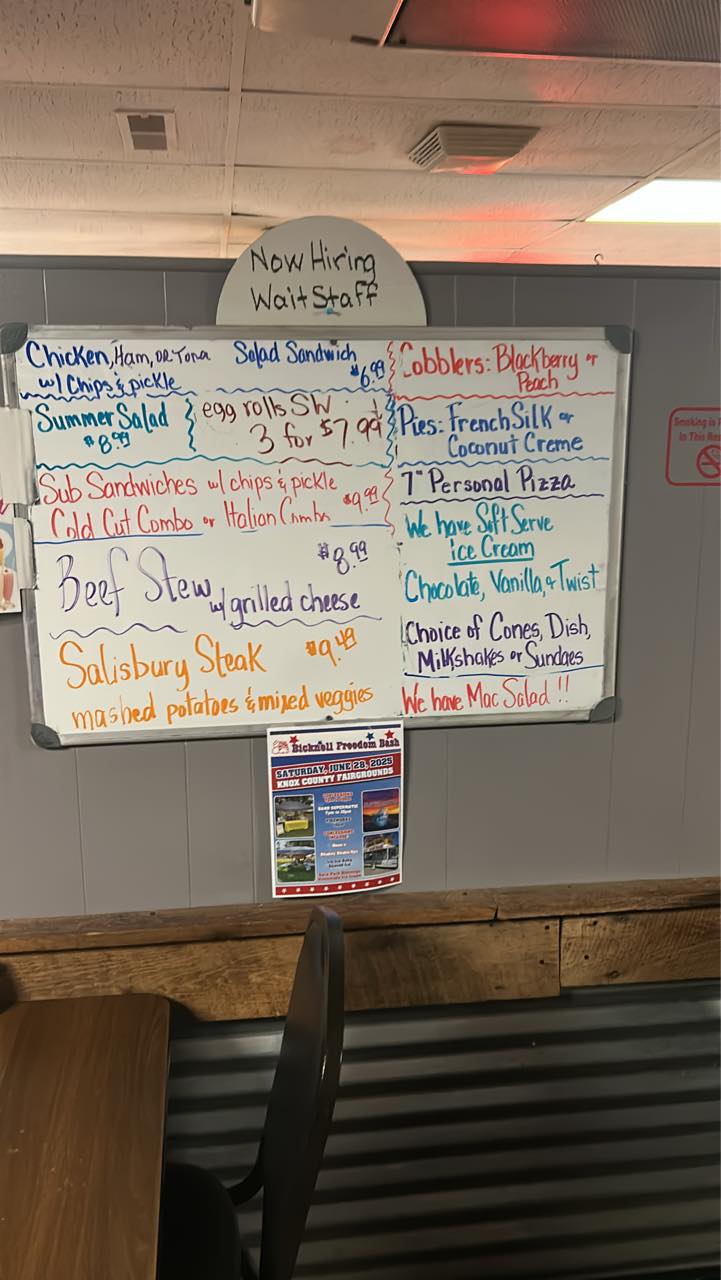 Now Hiring
Wait Staff
Chicken, Ham, or Tuna Salad Sandwich
w/ Chips & pickle $6.99
Summer Salad
$8.99
egg rolls SW
3 for $7.99
Sub Sandwiches w/ chips & pickle
Cold Cut Combo or Italian Combo $9.99
Beef Stew $8.99
w/ grilled cheese
Salisbury Steak $9.49
mashed potatoes & mixed veggies
Cobblers: Blackberry or
Peach
Pies: French Silk or
Coconut Creme
7" Personal Pizza
We have Soft Serve
ice Cream
Chocolate, Vanilla, & Twist
Choice of Cones, Dish,
Milkshakes or Sundaes
We have Mac Salad !!
Smoking is
In This
Bicknell Freedom Bash
SATURDAY, JUNE 28, 2025
KNOX COUNTY FAIRGROUNDS